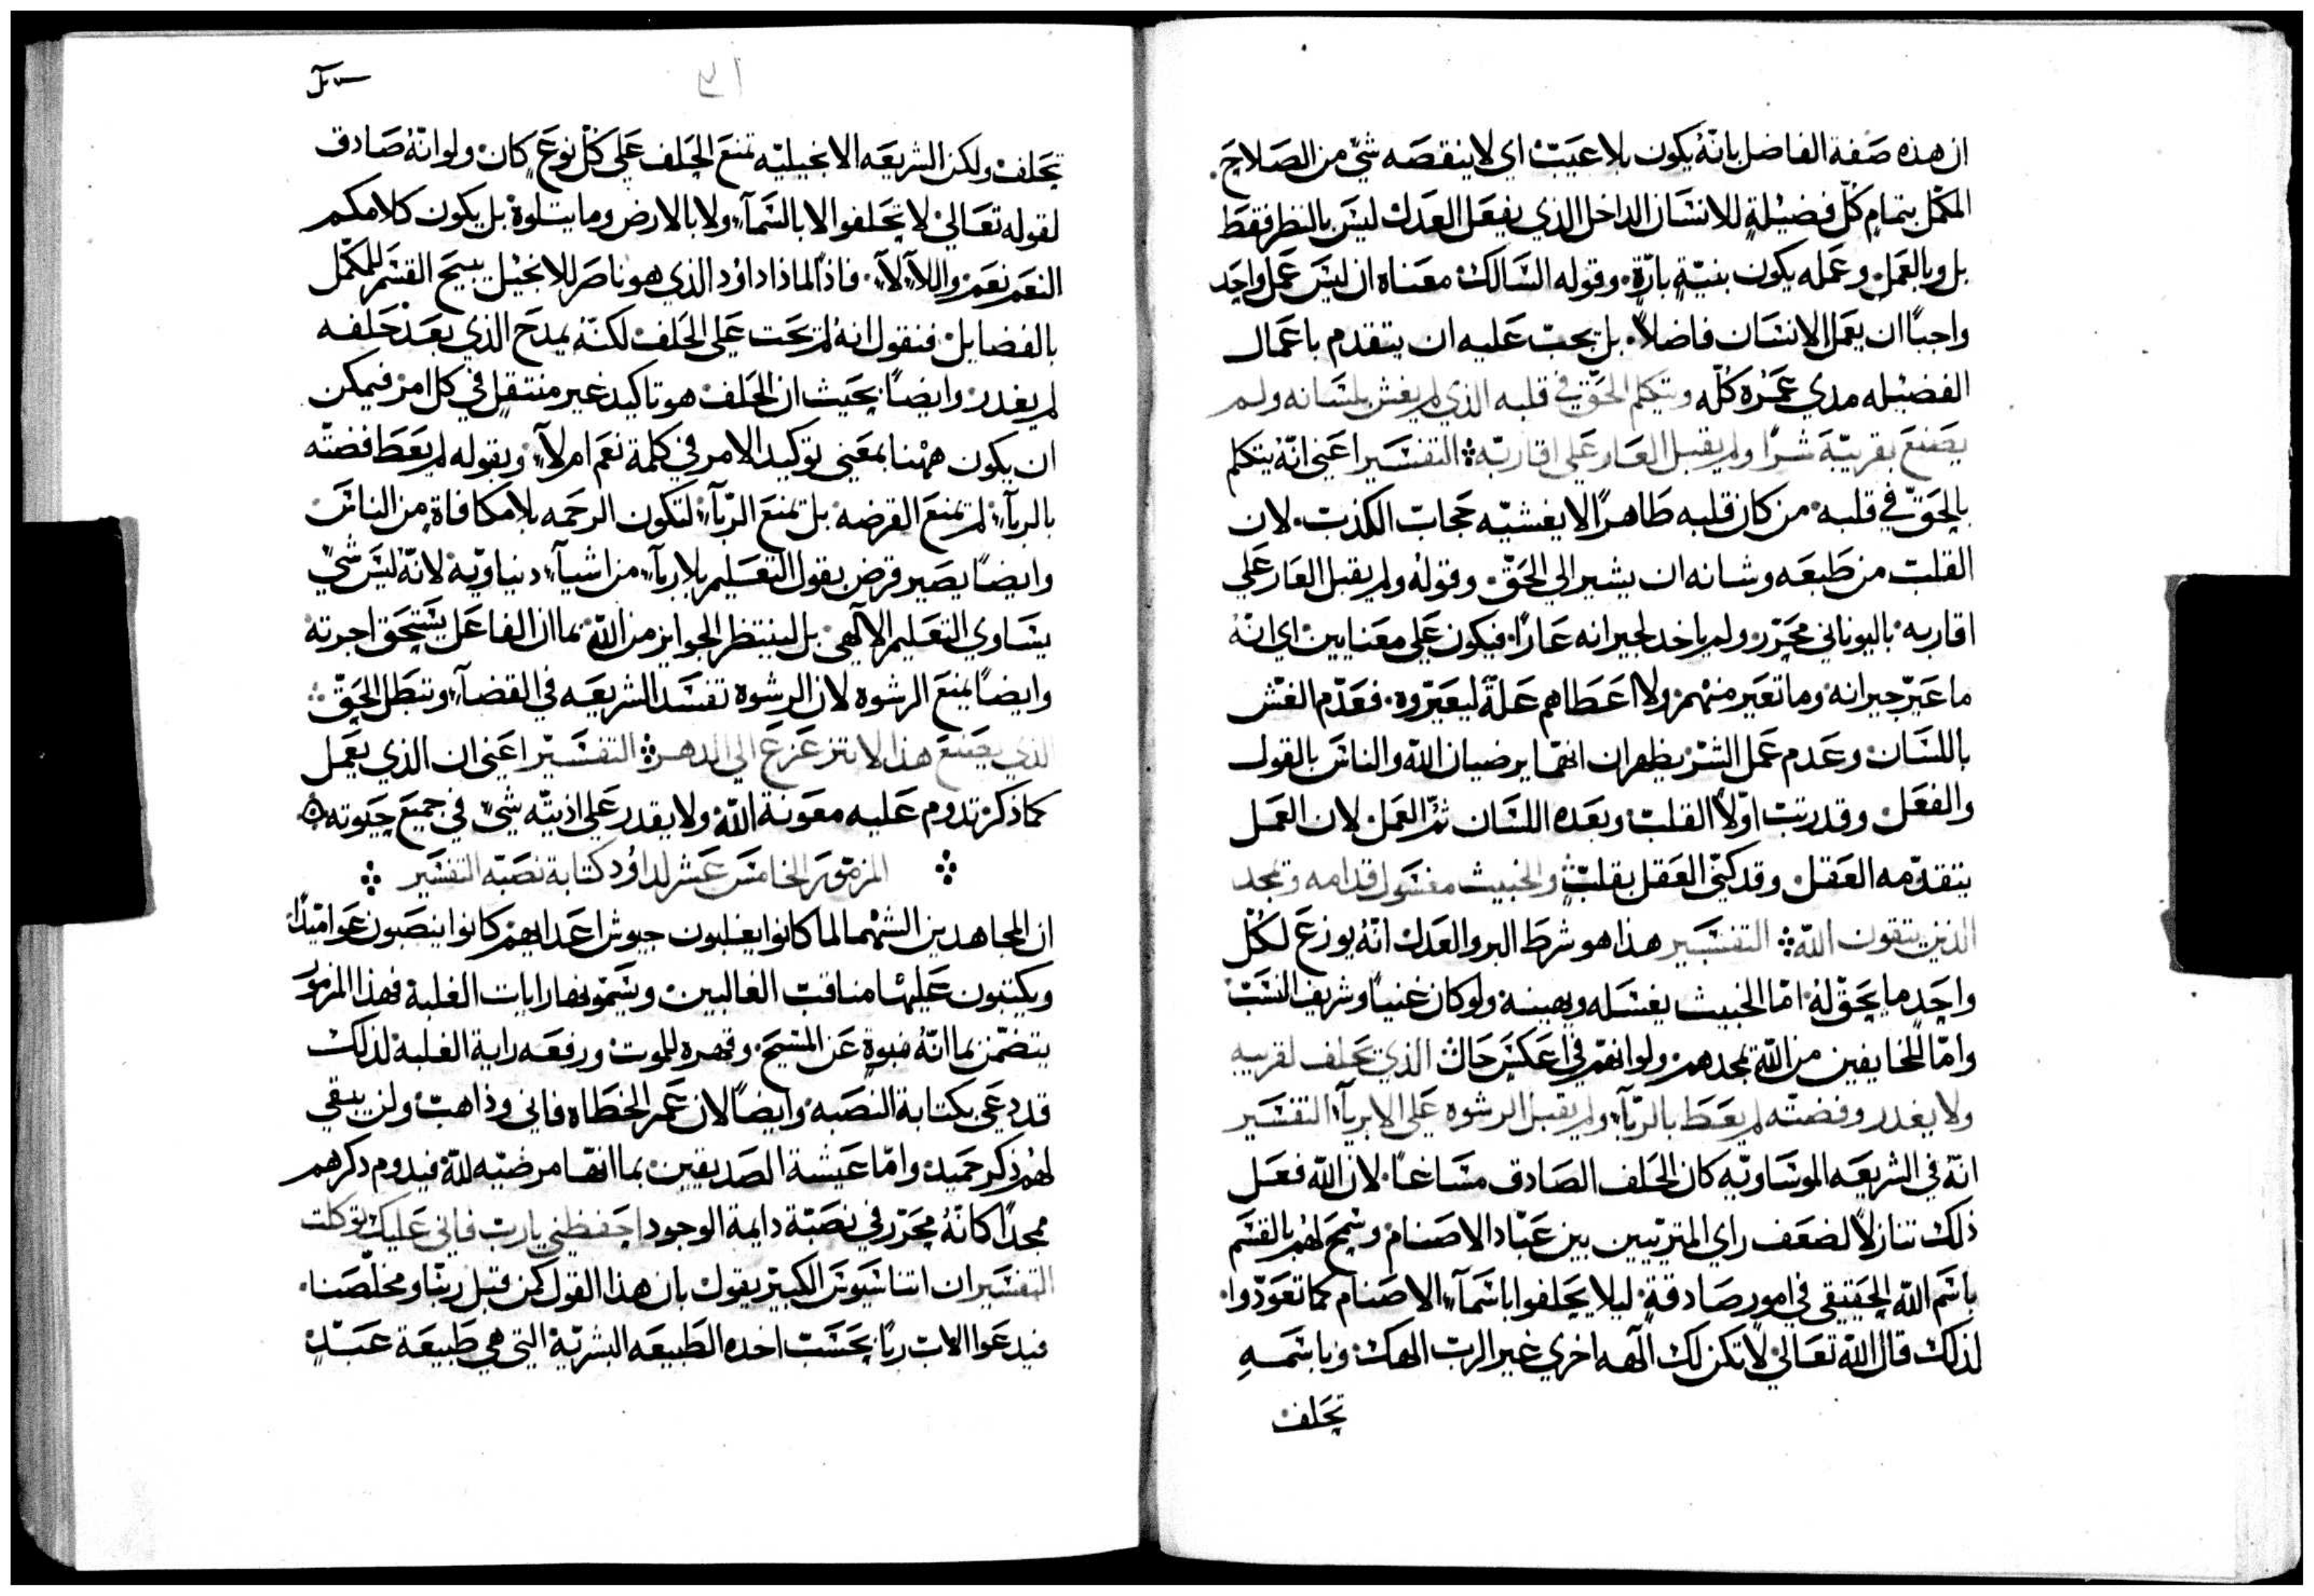 ان هذه صفة الفاضل بانّهُ يكون بلا عيبٍ اي لا ينقصه شيّ من الصلاح.
المكمّل بتمامِ كلّ فضيلةٍ للانسان الداخل الذي يفعل العدل ليس بالنظر فقط
بل وبالعمل وعمله يكون بنيّةٍ بارّةٍ. وقوله السالك معناه ان ليس عمل واحد
واجبًا ان يعمل الانسان فاضلاً. بل يجب عليه ان يتقدم باعمال
الفضيله مدي عمره كلّه ويتكلم الحقّ في قلبه الذي لم يغش بلسانه ولم
يصنع بقريبهَ شرًا ولم يقبل العار علي اقاربّه التفسير اعني انّه يتكلم
بالحقّ في قلبه من كان قلبه طاهرًا لا يغشيّه حجاب الكذب. لان
القلب من طبعه وشانه ان يشير الي الحقّ. وقوله ولم يقبل العار علي
اقاربه باليوناني محرّر ولم ياخد لجيرانه عارًا. فيكون علي معنايين اي انّه
ما عيّر جيرانه وما تعير منهم ولا اعطاهم علّةً ليعيّروه. فعدّم الغش
باللسان وعدم عمل الشرّ يظهران انهما يرضيان الله والناس بالقول
والفعل وقد رتب اوّلاً القلب وبعده اللسان ثمّ العمل لان العمل
يتقدّمه العقل وقد كنّي العقل بقلبٍ والخبيث مفسول قدامه وتمجد
الذين يتقون الله التفسير هذا هو شرط البر والعدل انّهُ يوزع لكلّ
واحدٍ ما يحقّ لهُ امّا الخبيث يفسله ويهينه ولو كان غنيًا وشريف النسب
وامّا للخايفين من الله تمجدهم ولو انهم في اعكس حال الذي يحلف لقريبه
ولا يغدر وفضتّه لم يعط بالربآء ولم يقبل الرشوه علي الابريآء التفسير
انّه في الشريعه الموساويّه كان الحلف الصادق مساغًا. لان الله فعل
ذلك تنازلاً لضعف راي المتربّيين بين عبّاد الاصنام وسمح لهم بالقسم
باسم الله الحقيقي في امورٍ صادقةٍ ليلا يحلفوا باسمآء الاصنام كما تعوّدوا.
لذلك قال الله تعالي لا تكن لك آلهه اخري غير الرب الهك وباسمهِ
تحلف
تحلف ولكن الشريعه الانجيليّه تمنع الحلف علي كلّ نوعٍ كان ولو انّهُ صادق
لقوله تعالي لا تحلفوا لا بالسمآء ولا بالارض وما يتلوه بل يكون كلامكم
النعم نعم واللآ لآ. فاذًا لماذا داوُد الذي هو ناصر للانجيل يبيح القسم للمكمّل
بالفضايل فنقول انهُ لم يحت علي الحلف لكنّه يمدح الذي بعد حلفه
لم يغدر وايضًا بحيث ان الحلف هو تاكيد غير منتقل في كل امر فيمكن
ان يكون ههنا بمعني توكيد الامر في كلمة نعم ام لآ وبقوله لم يعط فضتّه
بالربآء لم تمنع القرضه بل تمنع الربآء لتكون الرحمه بلا مكافاة من الناس
وايضًا يصير قرض بقول التعليم بلا ربآء من اشيآء دنياويّه لانّهُ ليس شيّ
يساوي التعليم الآلهي بل لينتظر الجوايز من الله بما ان الفاعل يستحق اجرته
وايضًا يمنع الرشوه لان الرشوه تفسد الشريعه في القضآء وتبطل الحقّ
الذي يصنع هذا لا يتزعزع الي الدهر التفسير اعني ان الذي يعمل
كما ذكر تدوم عليه معونة الله ولا يقدر علي اذيتّه شيّ في جميع حيوته ٥
المزمور الخامس عشر لداوُد كتابة نصبّه التفسير
ان المجاهدين الشهما لما كانوا يغلبون جيوش اعدايهم كانوا ينصبون عواميدًا
ويكتبون عليها مناقب الغالبين ويسمّونها رايات الغلبة فهذا المزمور
يتضمّن بما انّهُ نبوةٍ عن المسيح وقهره للموت ورفعه راية الغلبة لذلك
قد دعي بكتابة النصبه وايضًا لان عمر الخطاه فاني وذاهب ولن يبقي
لهم ذكر حميد وامّا عيشة الصديقين بما انها مرضيّه لله فيدوم ذكرهم
ممجدًا كانّهُ محرّر في نصبّة دايمة الوجود احفظني يارب فاني عليك توكلت
التفسير ان اتناسيوس الكبير يقول بان هذا القول كمن قبل ربّنا ومخلّصنا.
فيدعوا الاب ربًا بحسب اخده الطبيعه البشريّة التي هي طبيعة عبدٍ